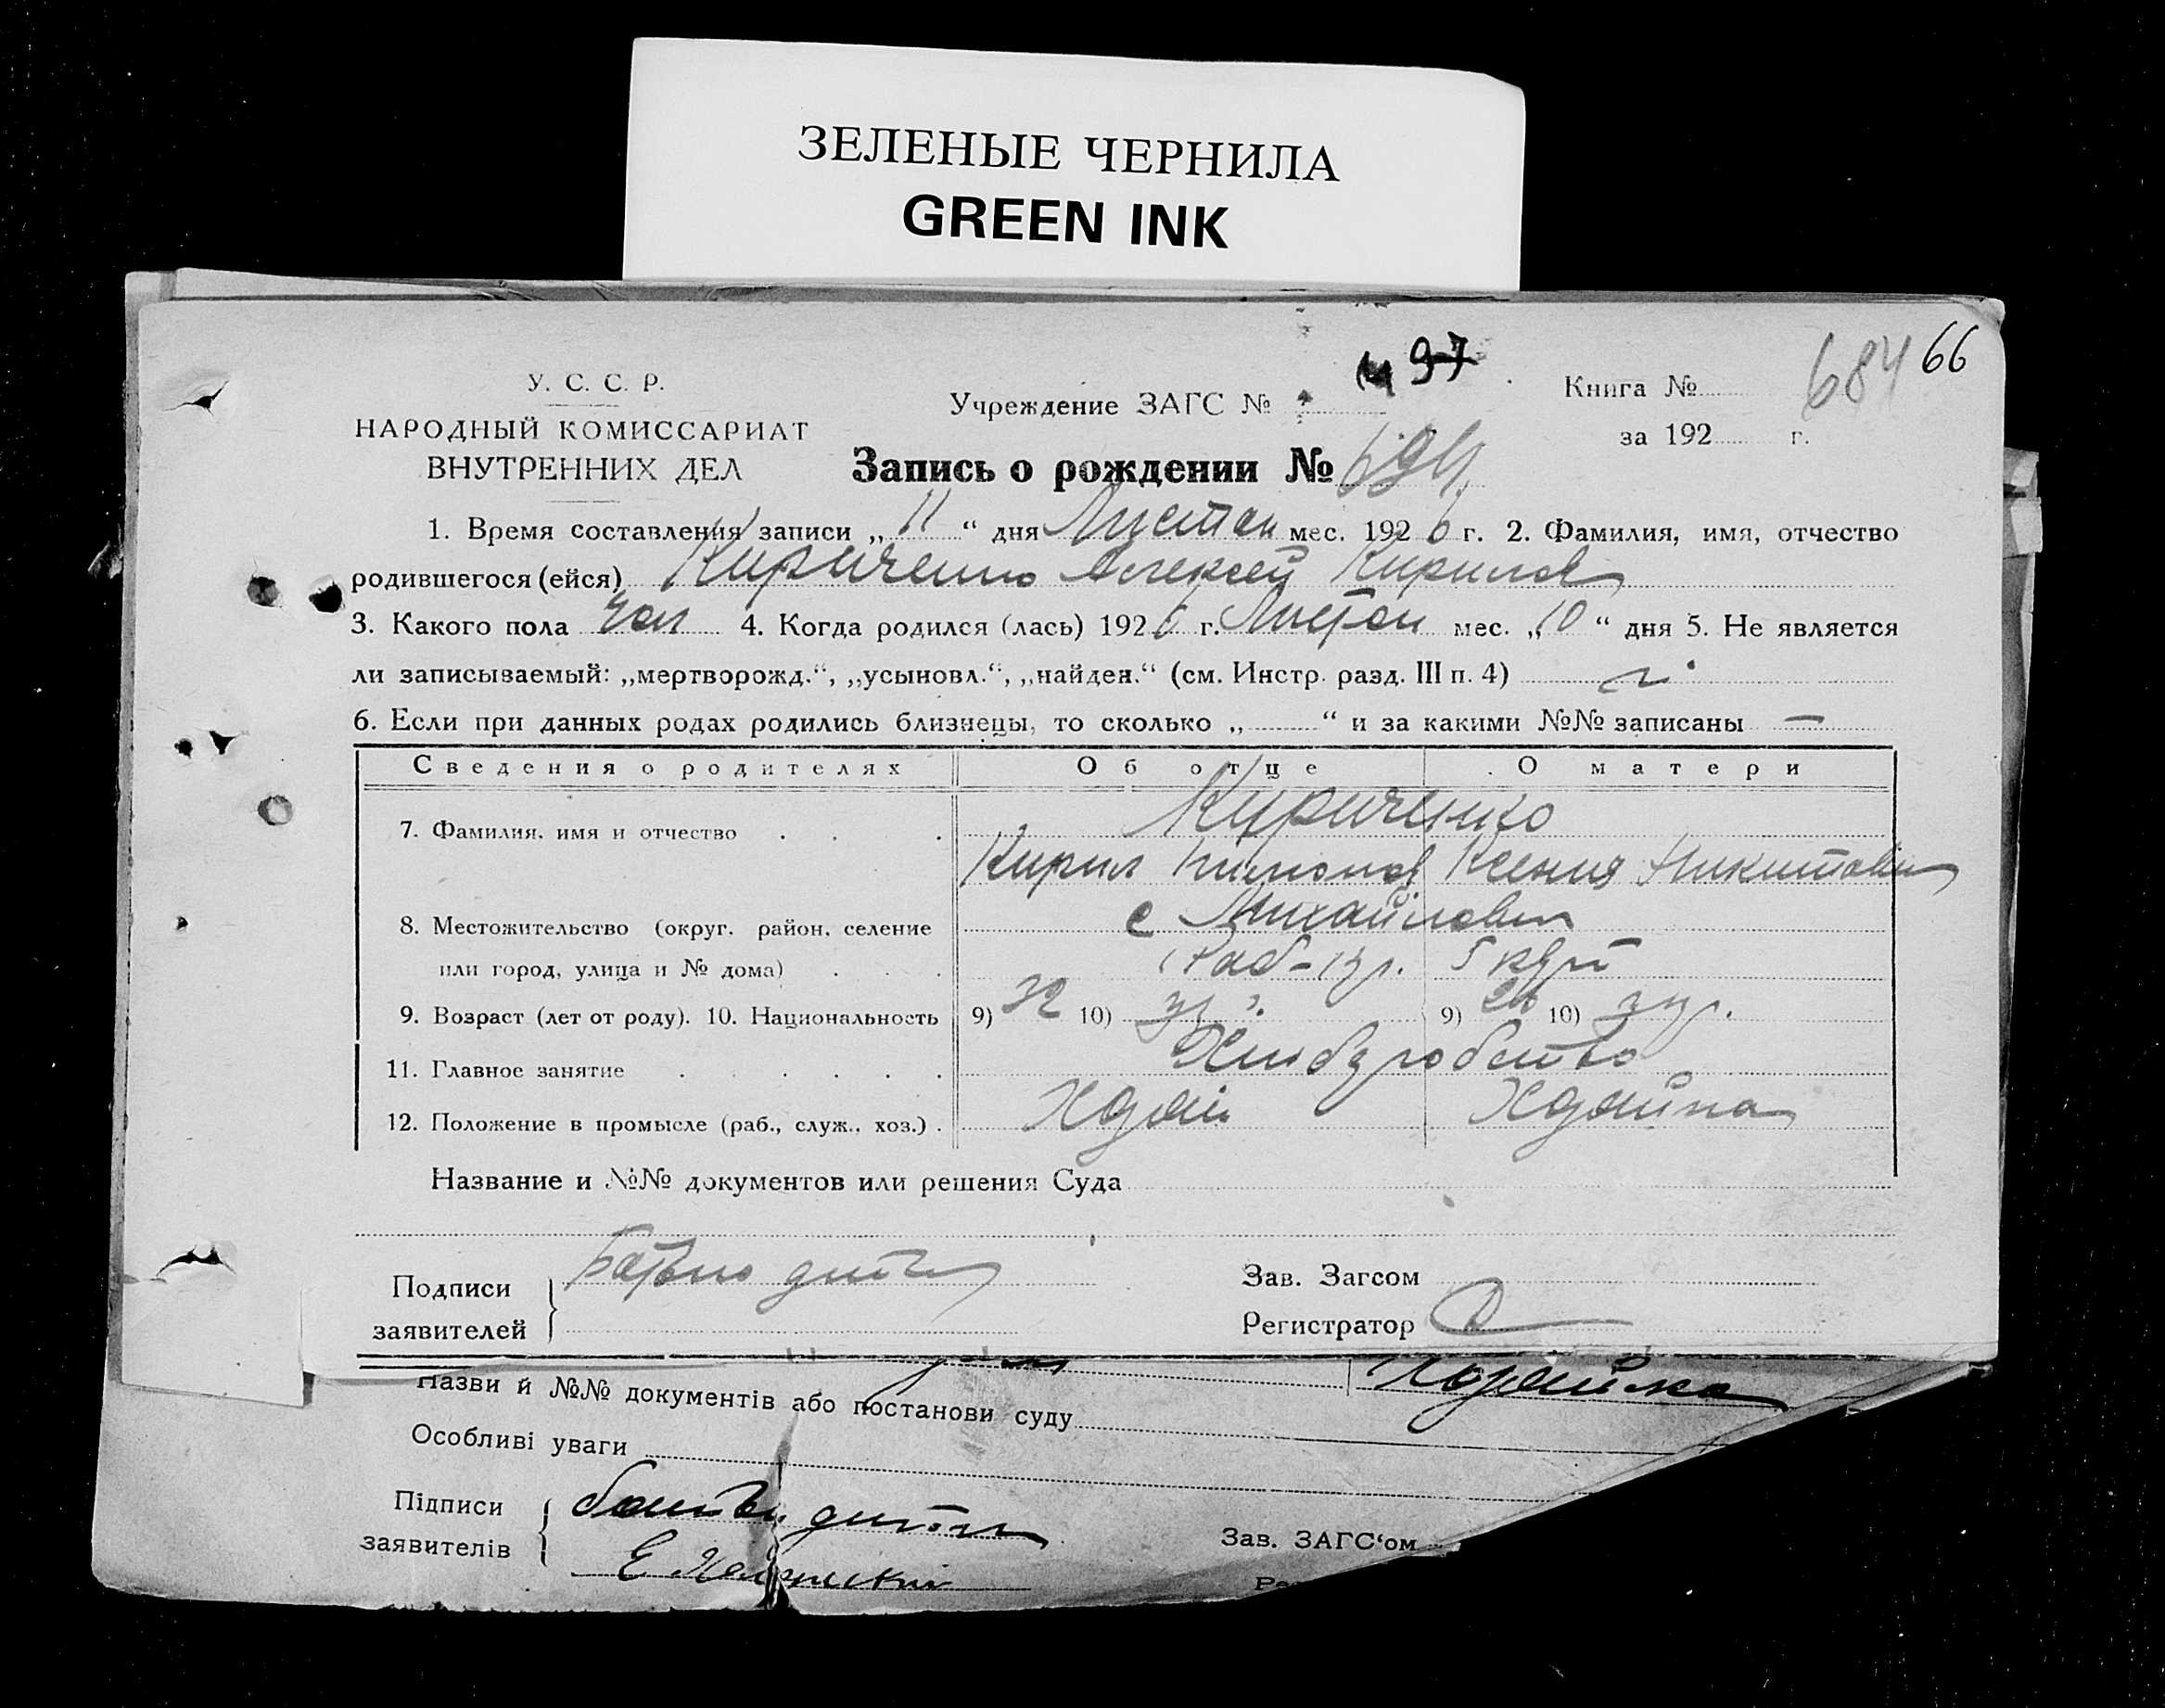 ЗЕЛЕНЫЕ ЧЕРНИЛА
GREEN INK
66
684
У. С. С. Р.
НАРОДНЫЙ КОМИССАРИАТ
ВНУТРЕННИХ ДЕЛ
Учреждение ЗАГС №
97
Книга №
за 192 г.
Запись о рождении №
1. Время составления записи „ 11 “ дня Листоп мес. 192 6 г. 2. Фамилия, имя, отчество
родившегося (ейся) Кириченко Алексей Кирилов
3. Какого пола чол 4. Когда родился (лась) 192 6 г. Листоп мес. „ 10 “ дня 5. Не является
ли записываемый: „мертворожд.“, „усыновл.“, „найден.“ (см. Инстр. разд. III п. 4)
6. Если при данных родах родились близнецы, то сколько „ “ и за какими №№ записаны —
Сведения о родителях Об отце О матери
7. Фамилия, имя и отчество Кириченко
Кирил Ксения Никитовна
8. Местожительство (округ, район, селение с Михайловка
или город, улица и № дома)
9. Возраст (лет от роду). 10. Национальность 9) 32 10) 9) 26 10) укр.
11. Главное занятие Хлиборобство
12. Положение в промысле (раб., служ., хоз.)
Название и №№ документов или решения Суда
Подписи Батько дитини
заявителей
Зав. Загсом
Регистратор
Хозяйка
Назви й №№ документів або постанови суду
Особливі уваги
Підписи батько дитини
заявителів Е
Зав. ЗАГС‘ом